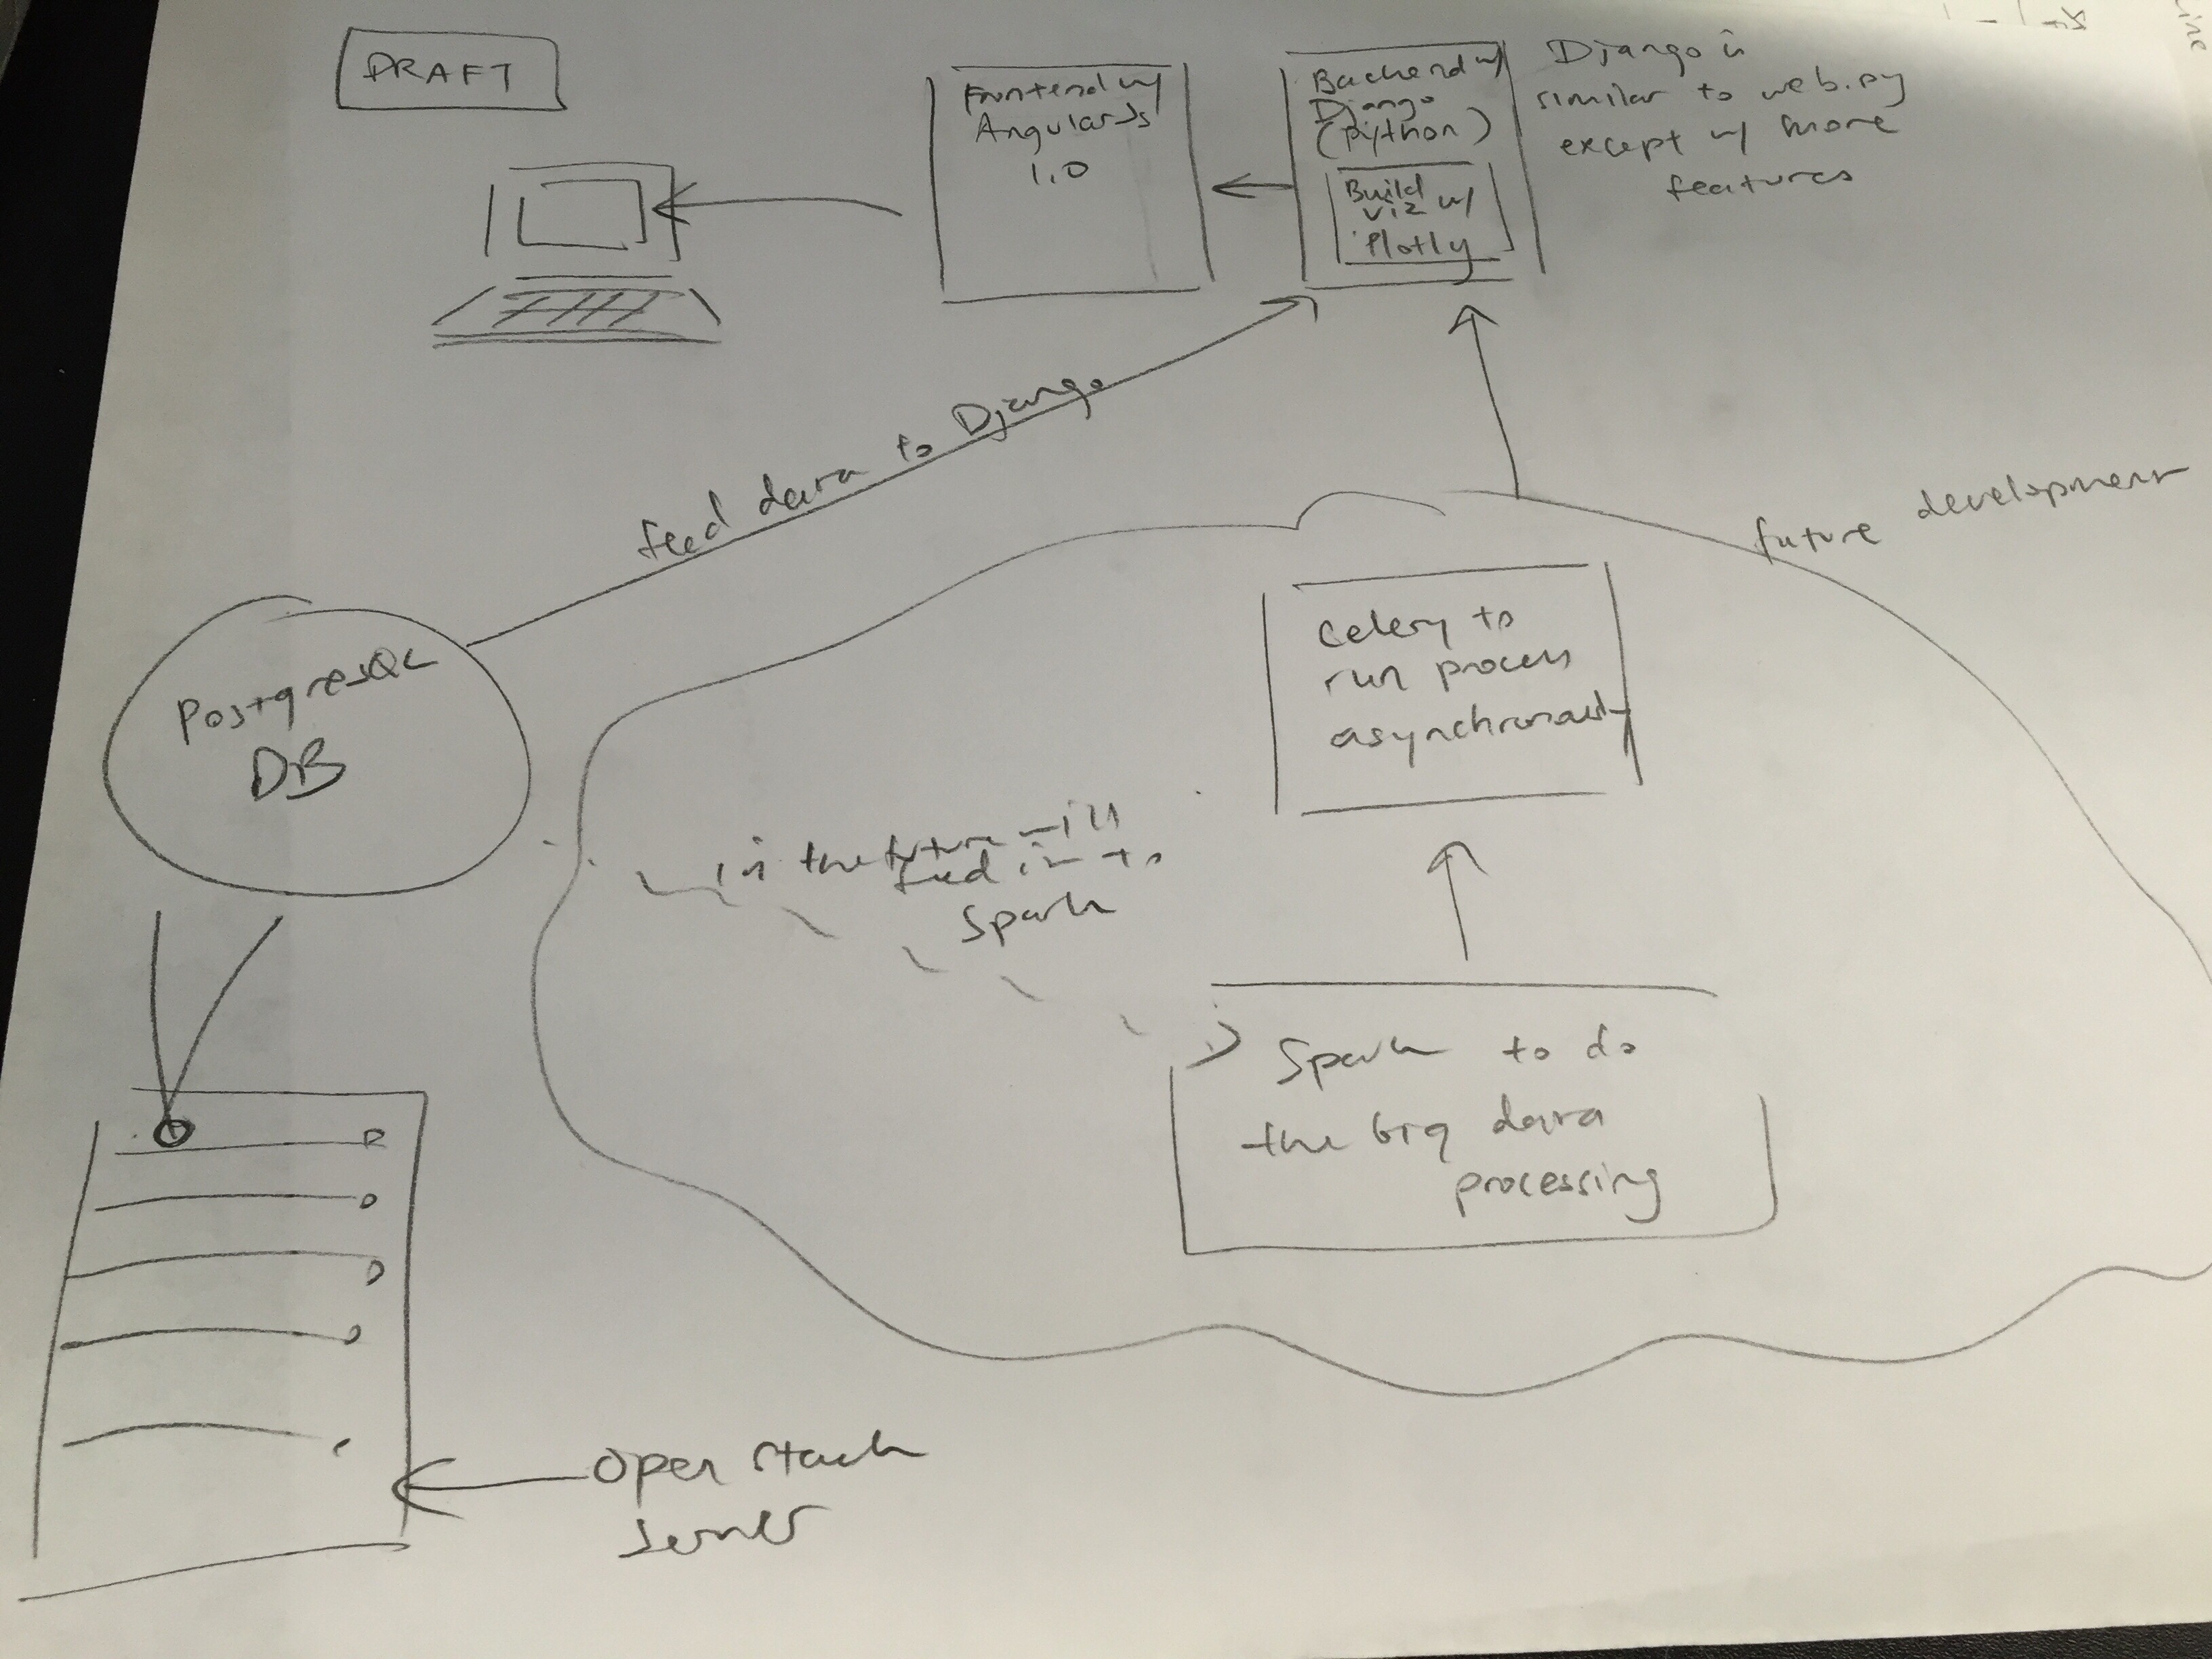 DRAFT
Frontend w/
AngularJs
1.0
Backend w/
Django
(Python)
Build
viz w/
Plotly
Django is
similar to web.py
except w/ more
features
feed data to Django
future development
PostgresQL
DB
Celery to
run process
asynchronously
in the future will
feed in to
Spark
Spark to do
the big data
processing
Open stack
server